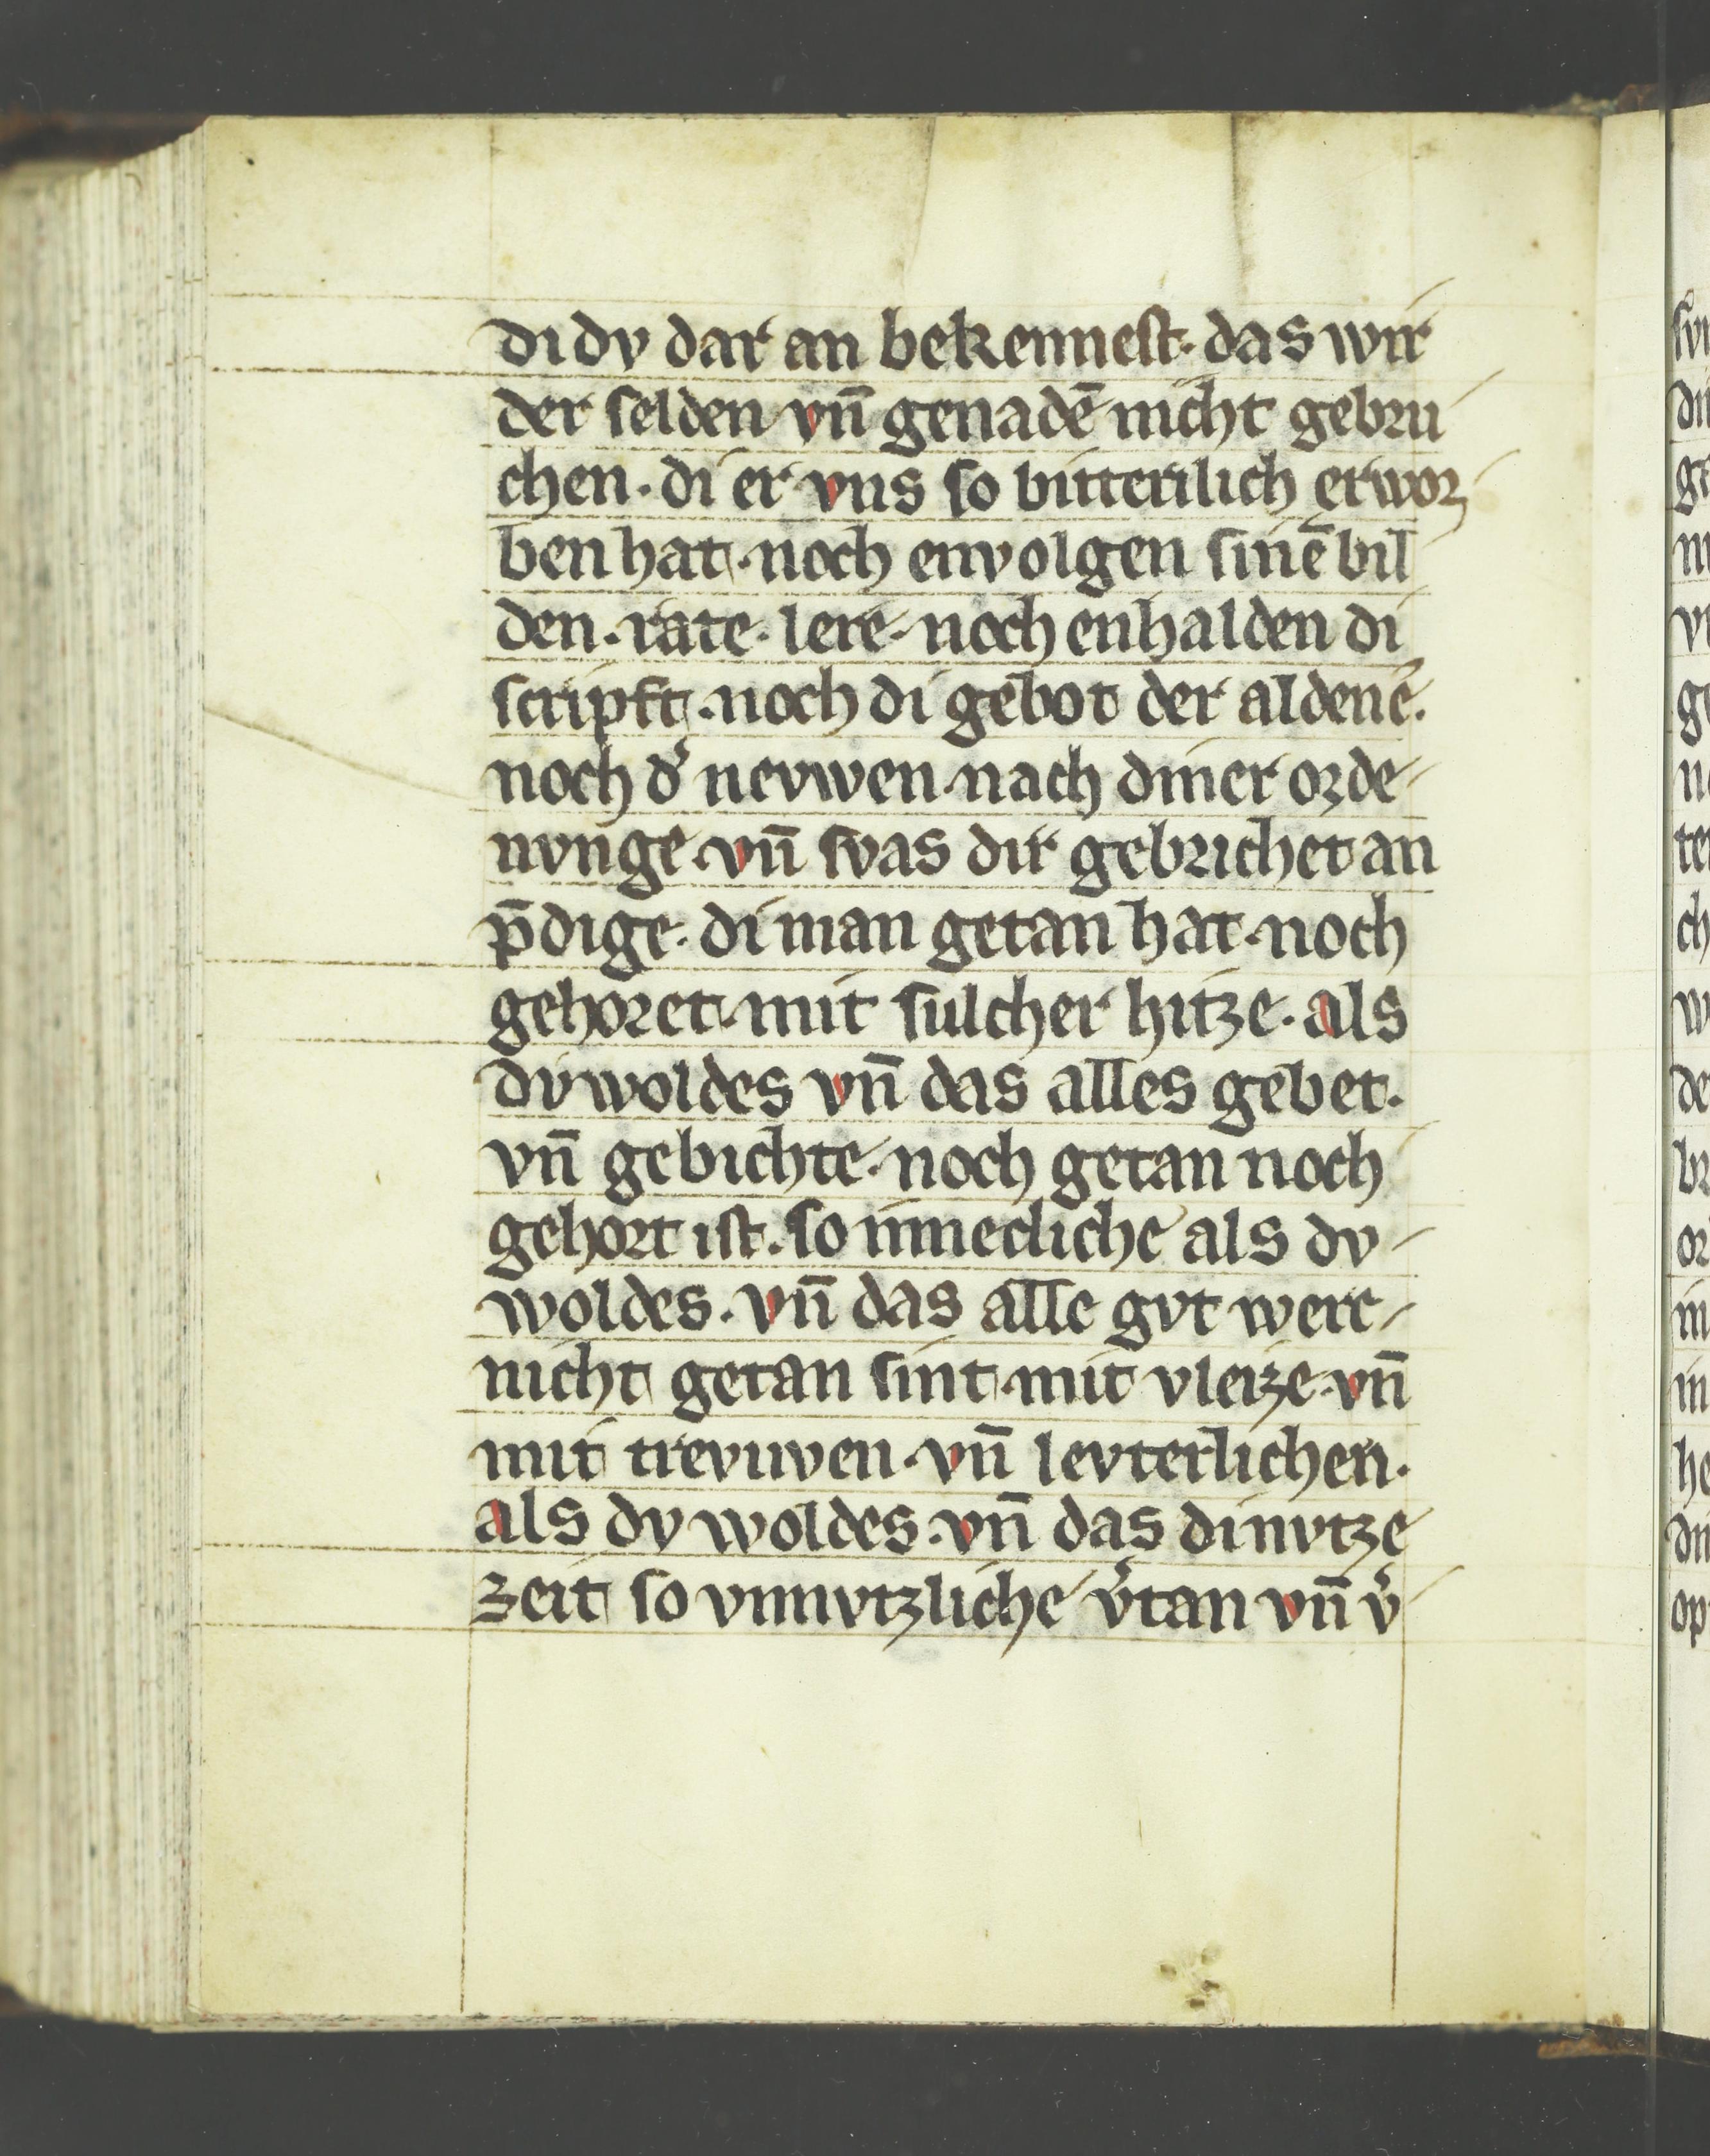 di dv dar an bekennest· das wir
der selden vn̄ genadē nicht gebru
chen· di er vns so bitterlich erwor
ben hat· noch envolgen sinē bil
den· rate· lere· noch enhalden di
scripft· noch di gebot der alden e·
noch d͛ nevwen· nach diner orde
nvnge· vn̄ svas dir gebrichet an
p̄dige· di man getan hat· noch
gehoret· mit sulcher hitze· als
dv woldes vn̄ das alles gebet·
vn̄ gebichte· noch getan noch
gehort ist· so inneclliche als dv
woldes· vn̄ das alle gvt werc
nicht getan sint· mit vleize· vn̄
mit trevuven· vn̄ levterlichen·
als dv woldes· vn̄ das di nvtze
zeit so vnnvtzliche v͛tan vn̄ v͛